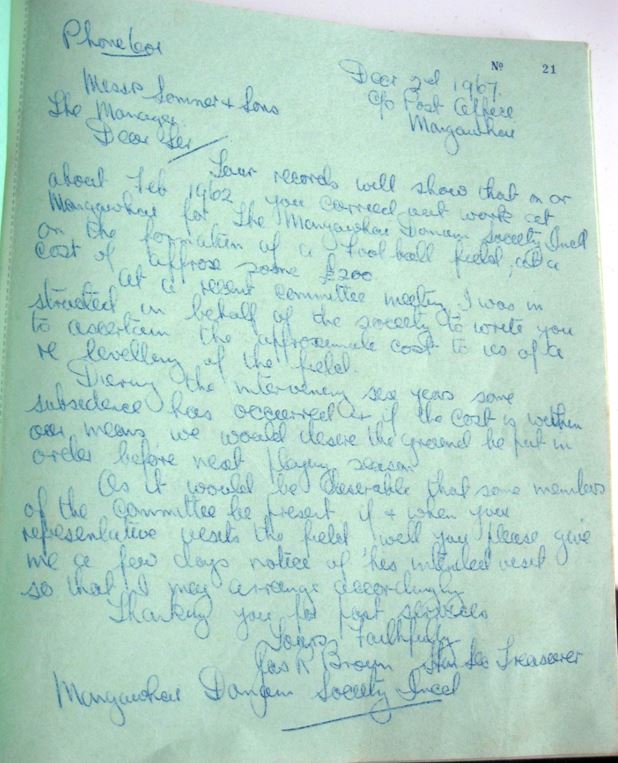 Phone 601
Nº 21
Decr 2nd 1967.
c/o Post Office
Mangawhai
Messrs Somner & Sons
The Manager
Dear Sir
Your records will show that on or
about Feb 1962 you carried out work at
Mangawhai for The Mangawhai Domain Society Incd
on the formation of a Foot ball field, at a
cost of approx some £200.
At a recent committee meeting I was in
structed on behalf of the society to write you
to ascertain the approximate cost to us of a
re levelling of the field.
During the intervening six years some
subsidence has occurred & if the cost is within
our means we would desire the ground be put in
order before next playing season
As it would be desirable that some members
of the committee be present if & when your
representative visits the field will you please give
me a few days notice of his intended visit
so that I may arrange accordingly
Thanking you for past services
Yours Faithfully
Jas R Brown Hon Sec Treasurer
Mangawhai Domain Society Incd